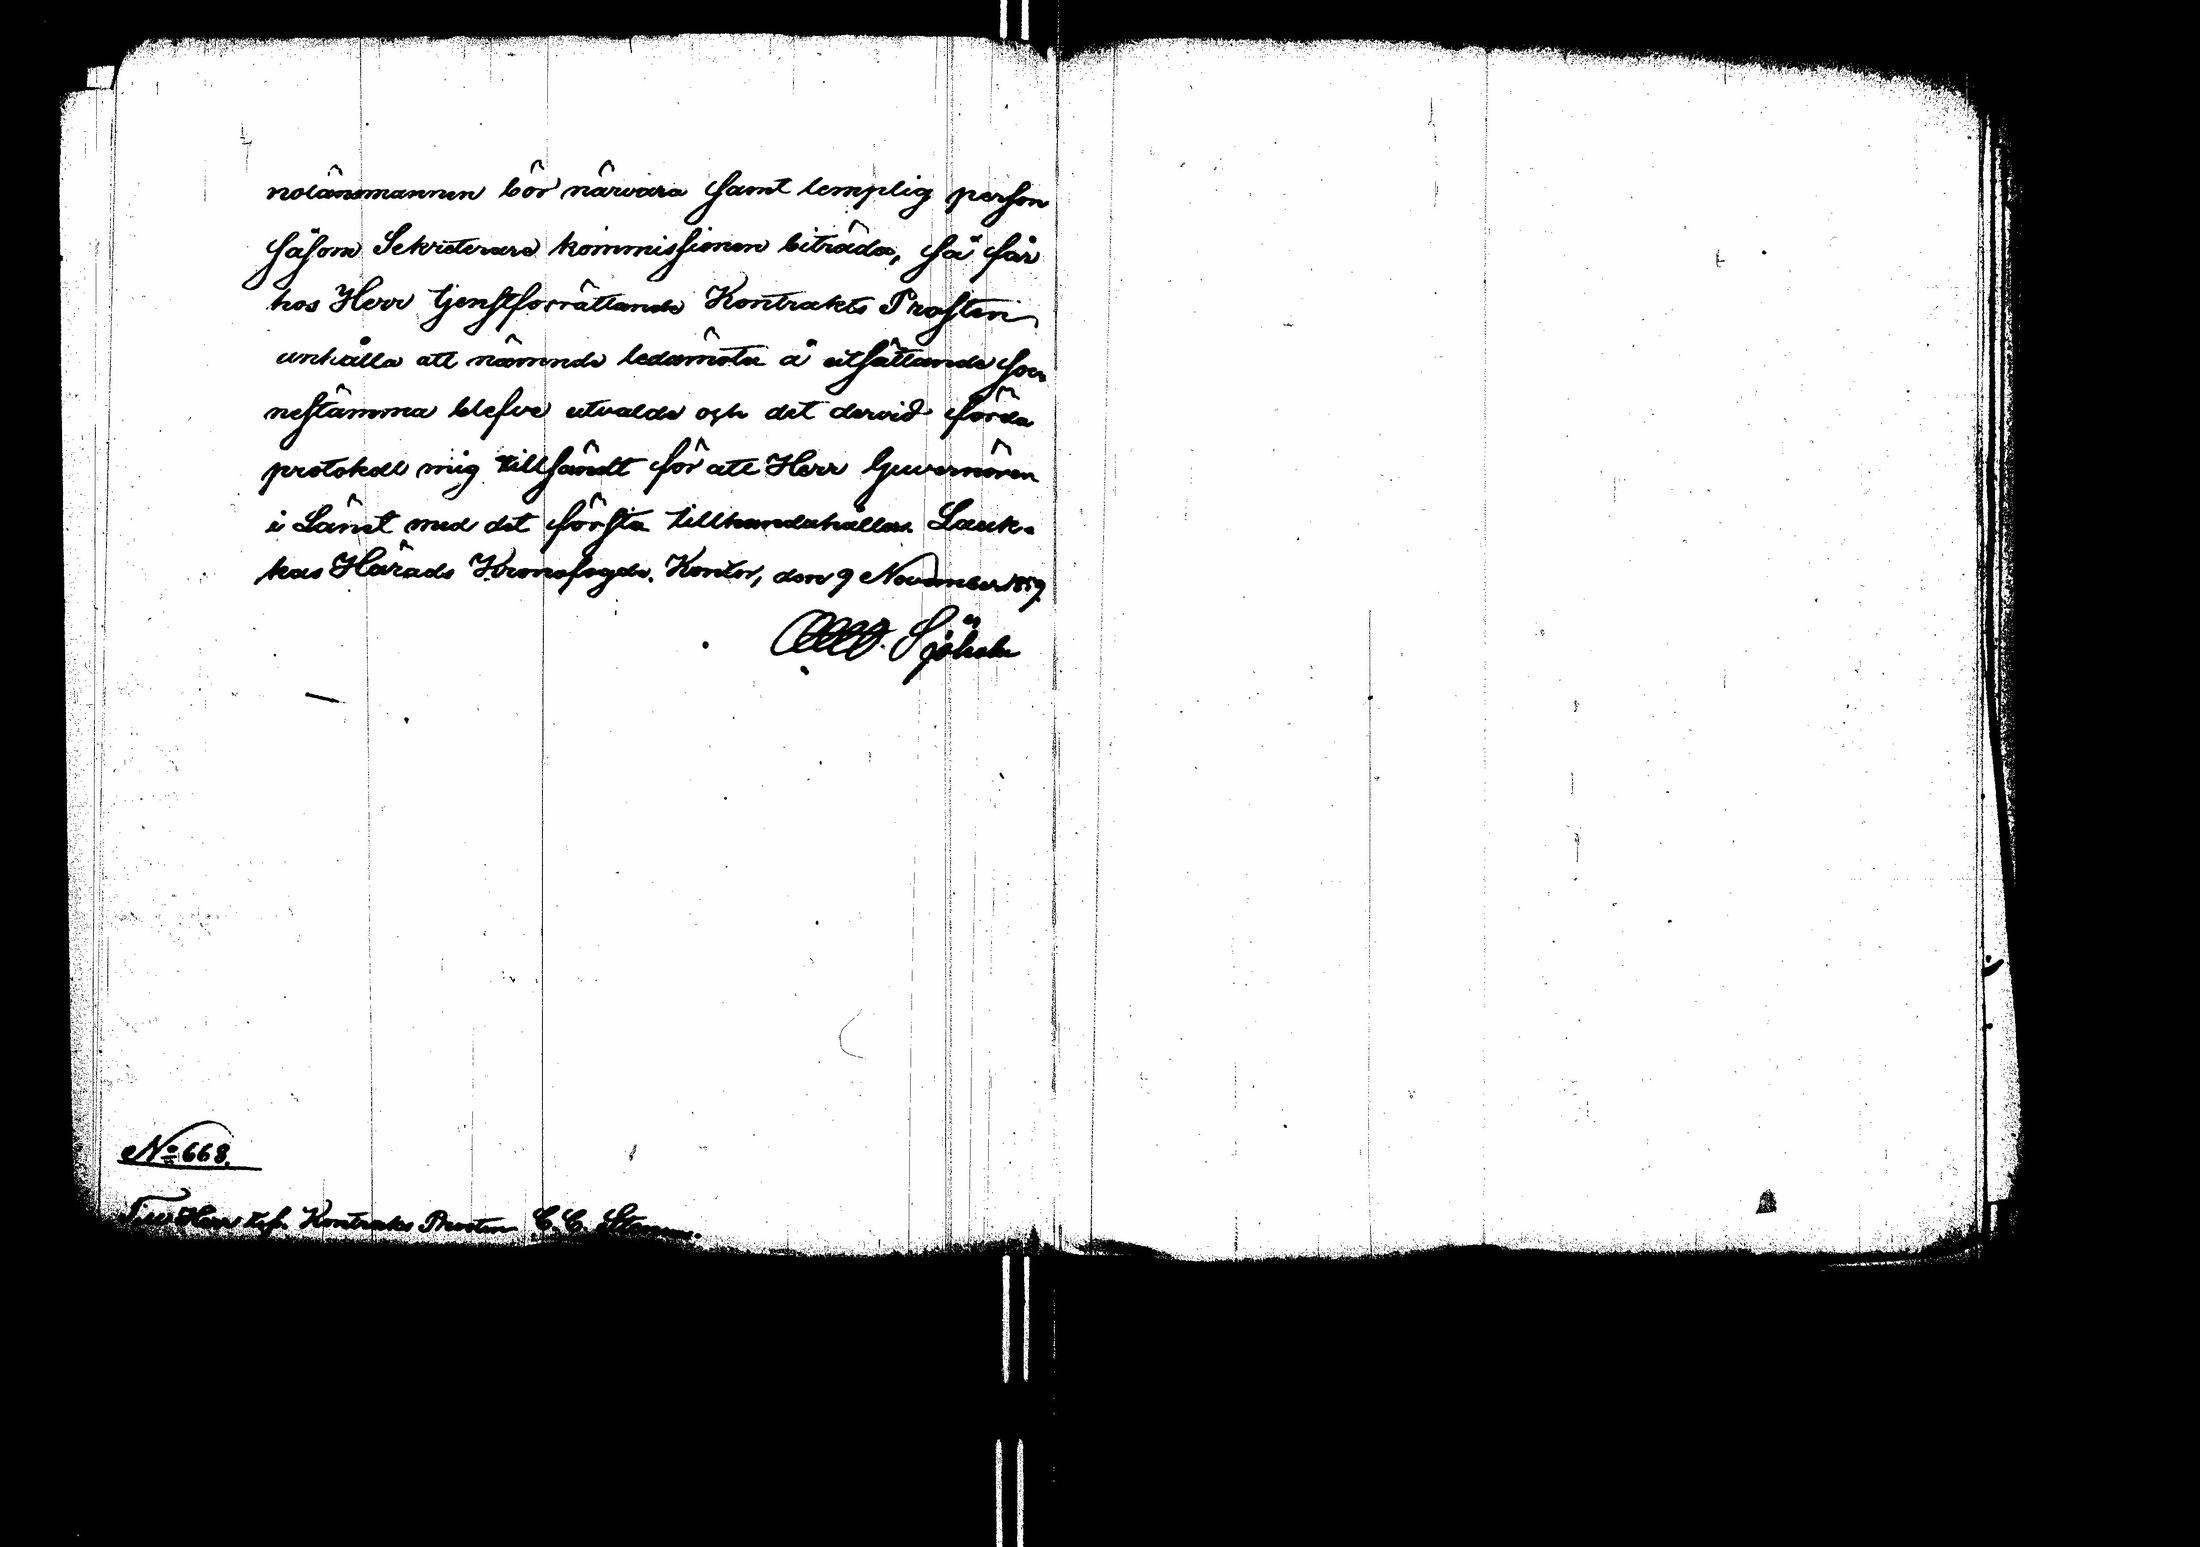 nolänsmannen bör närvara samt lemplig person
såsom Sekreterare kommissionen biträda, så får
hos Herr tjenstförrättande Kontrakts Prosten
anhålla att nämnde ledamöter å utsättande soc
nestämma blefve utvalde och det dervid förda
protokoll mig tillsändt för att Herr Guvernören
i Länet med det första tillhandahållas. Lauk-
kas Härads Kronofogde Kontor, den 9 November 1859.
Sjöholm
No 668.
Till Herr tjf. Kontrakts Prosten C. C.